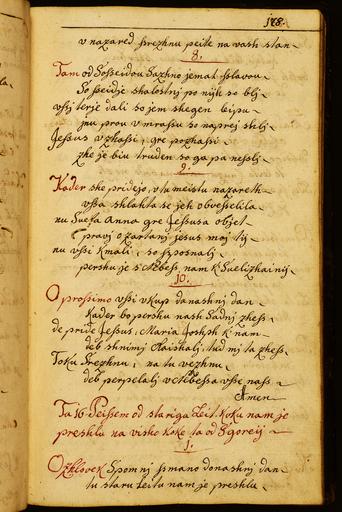 188.
v nazared srezhnu peite na vash stan
8.
Tam od Sosseidou Sazhno jemat sslavou
So sseidje shalostnj po nijh so blj
vsij terje dali so jem shegen leipu
jnu prou v mrassu so naprej shlj
Jessus vzhassi, gre pozhassi
zhe je biu truden so ga pa nesslj
9.
Kader she pridejo, v tu meistu nazareth
vssa shlahta se jeh obvesselila
nu Sueta Anna gre Jessusa objet
pravj ozartanj jesus moj tij
nu vssi kmali, so sposnalj
pershu je s Nebess, nam k Suelizhainij
10.
O prossimo vssi vkup danashnj dan
kader bo pershu nash Sadnj zhess
de pride Jessus, Maria Joshph k nam
deb shnimj Raishalj, tud mj ta zhess
Toku Srezhnu, na tu vezhnu
deb perpelalj v Nebessa vsse nass
Amen
Ta 16 Peissem od stariga Leit. koku nam je
preshlu na visho koke ta od Sgoreij
1.
O zhlovek Spomnj ssmano donashnj dan
tu staru Leitu nam je preshlu